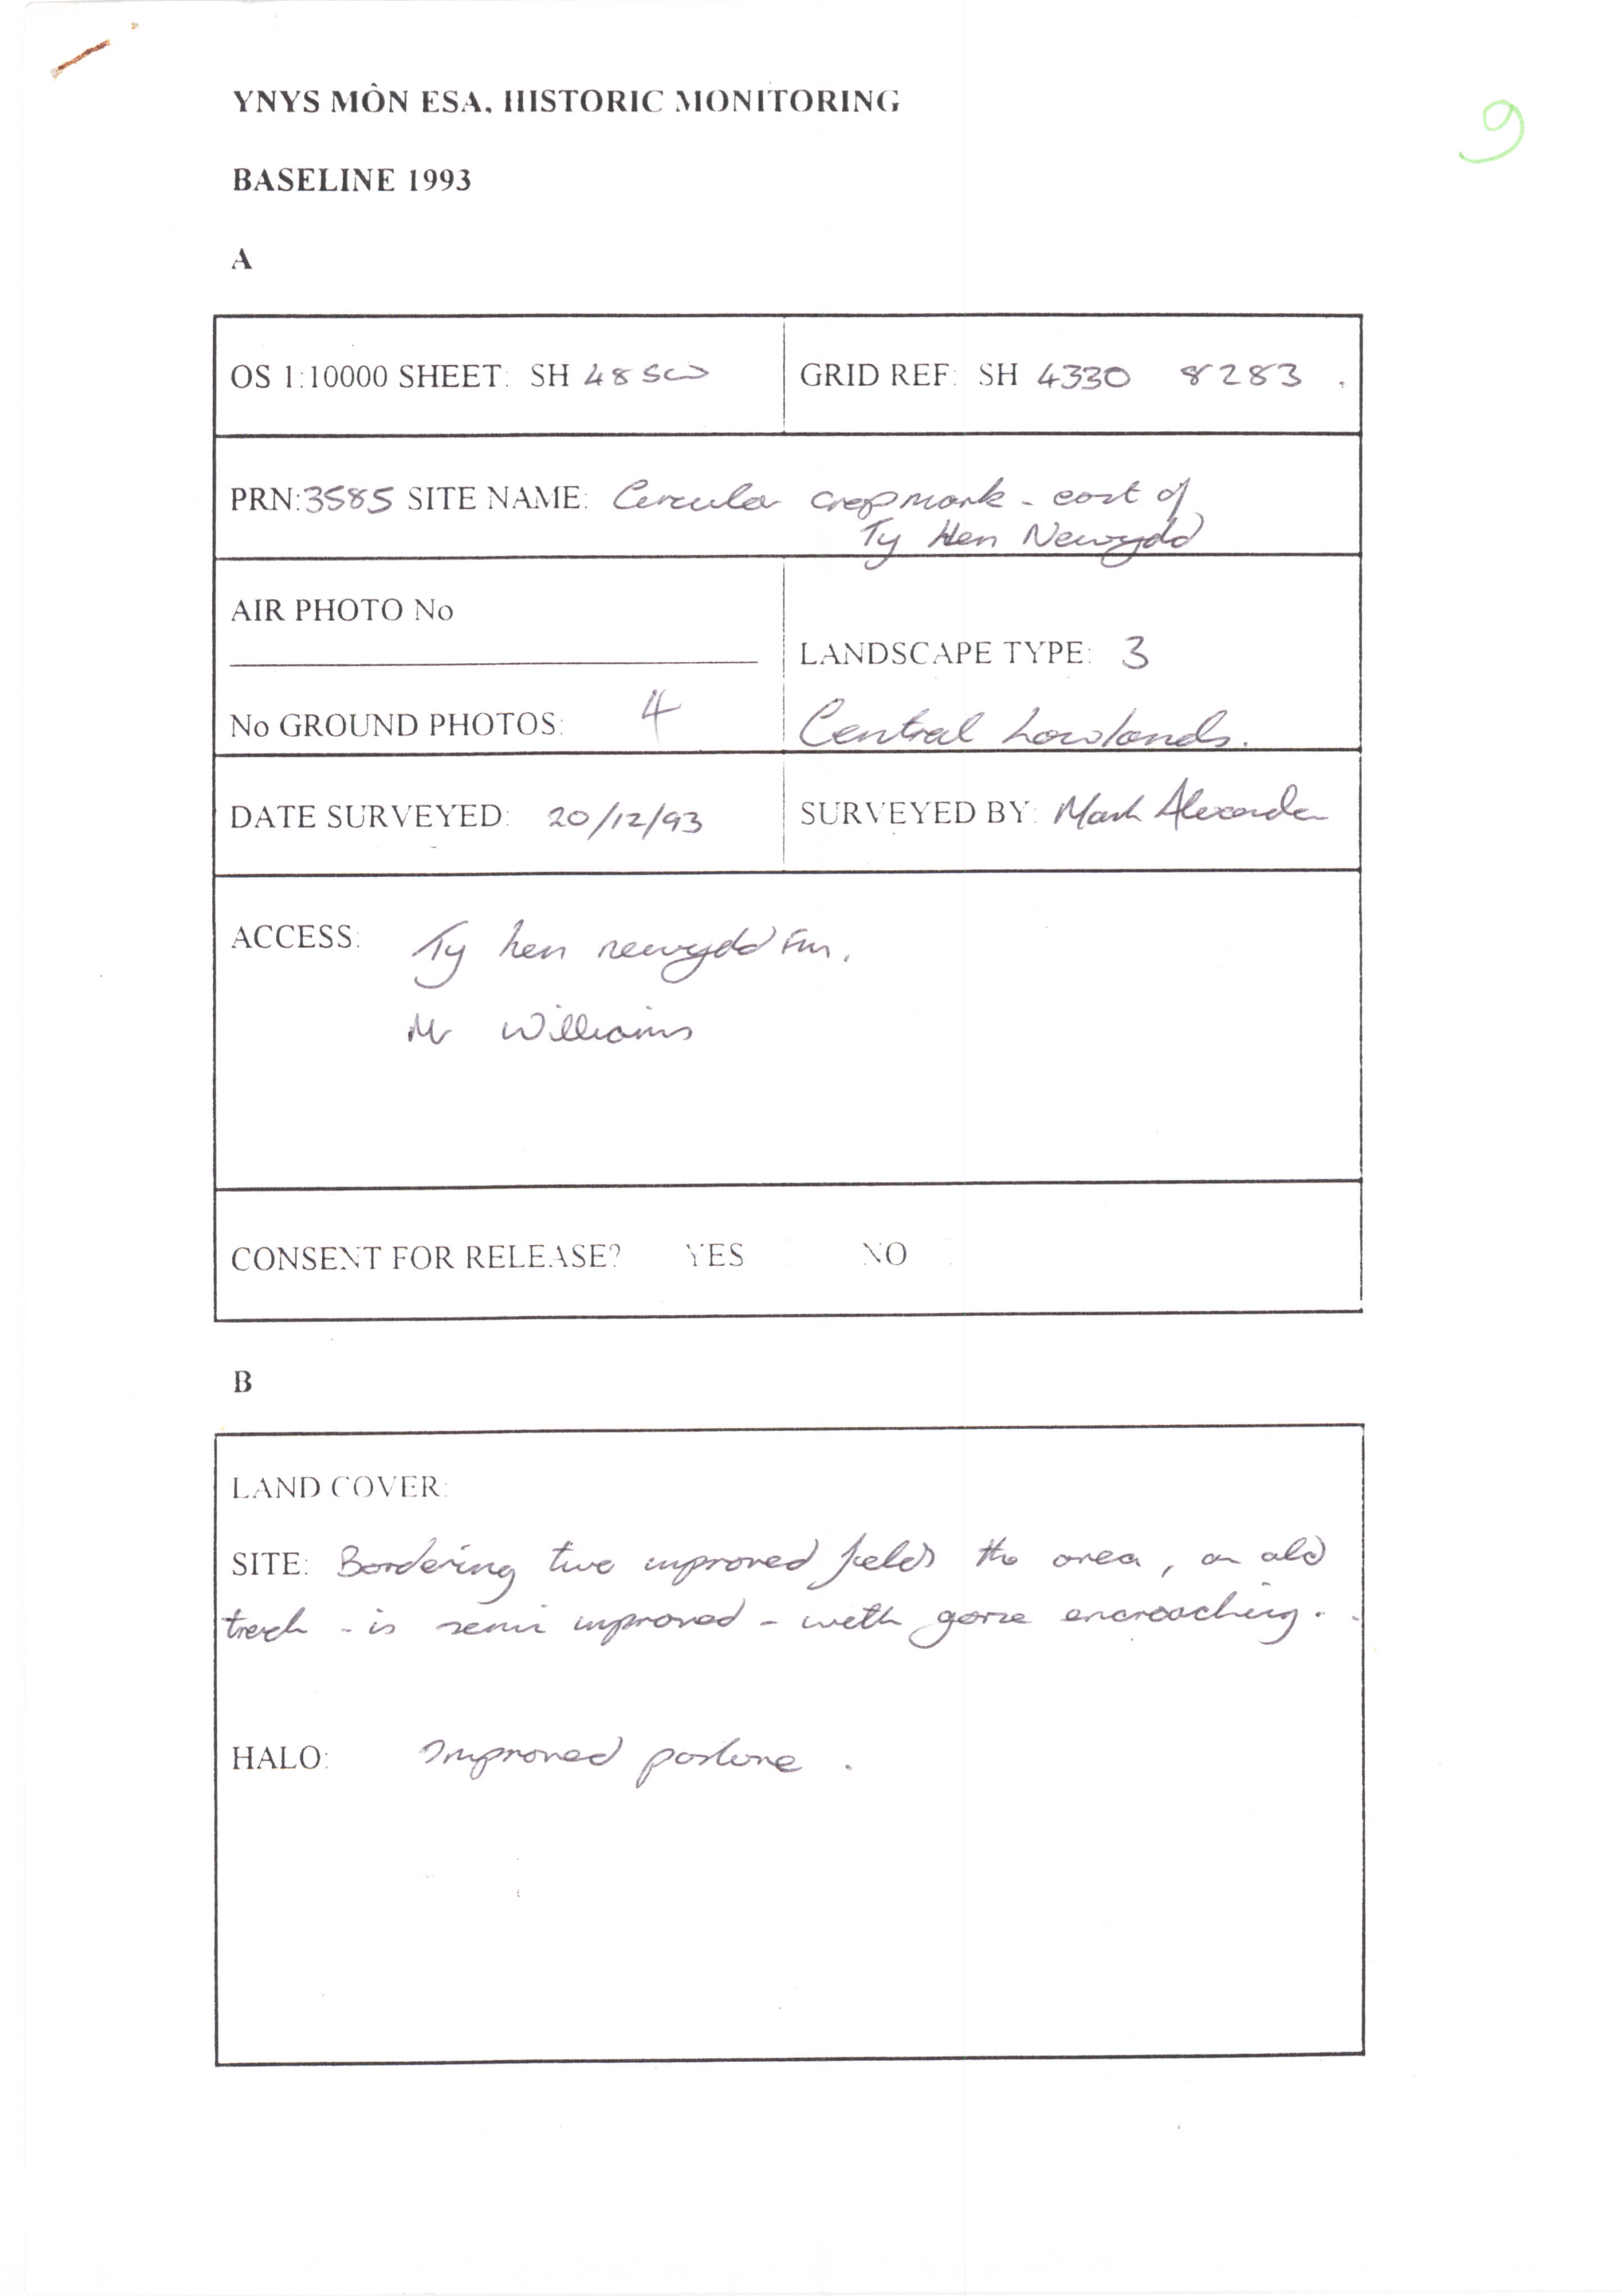 YNYS MÔN ESA. HISTORIC MONITORING
9
BASELINE 1993
A
OS 1:10000 SHEET: SH 48 SW
GRID REF: SH 4330 8283 .
PRN: 3585 SITE NAME: Circular cropmark - east of
Ty Hen Newydd
AIR PHOTO No
LANDSCAPE TYPE: 3
No GROUND PHOTOS: 4
Central Lowlands.
DATE SURVEYED: 20/12/93
SURVEYED BY: Mark Alexander
ACCESS: Ty hen newydd Fm.
Mr Williams
CONSENT FOR RELEASE? YES NO
B
LAND COVER:
SITE: Bordering two improved fields the area, an old
track - is semi improved - with gorse encroaching.
HALO: Improved pasture .